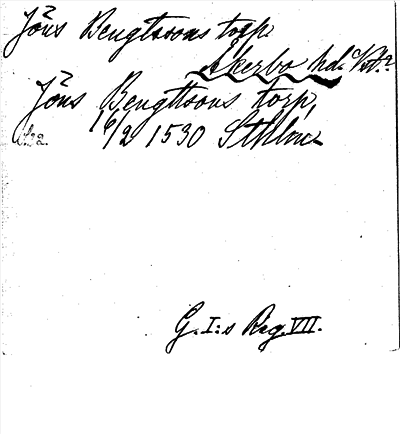 Jöns Bengtssons torp
Åkerbo hd.
Jöns Bengttsons torp,
16/2 1530 Sthlm
G. I:s Reg. VII.